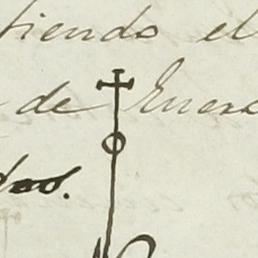 tiendo el
de Enero
dos.